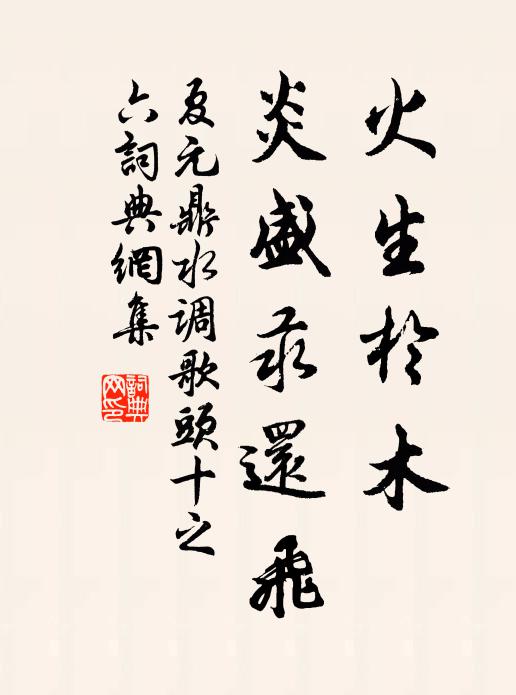 火生於木
炎盛求還飛
夏元鼎水调歌頭十之
六詞典網集
詞典
网印